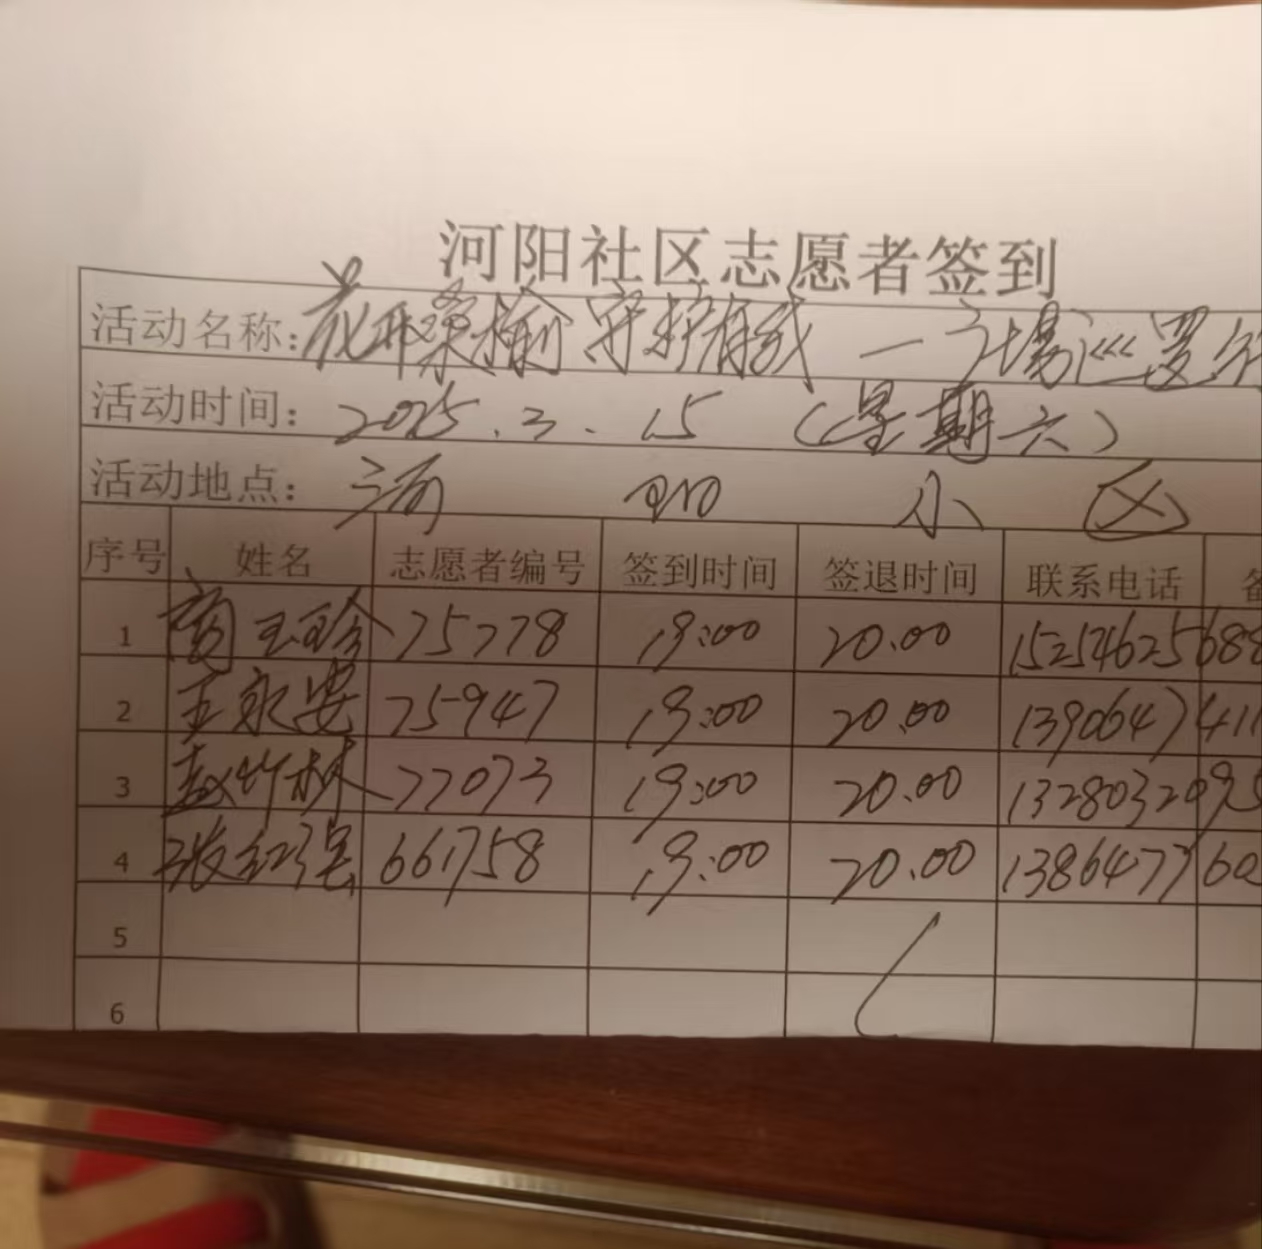 河阳社区志愿者签到
活动名称：花开桑榆 守护有我 — 广场巡逻
活动时间：2025.3.15（星期六）
活动地点：河阳小区
序号 姓名 志愿者编号 签到时间 签退时间 联系电话 备
1 商玉珍 75778 19:00 20.00 15254625688
2 王永安 75947 19:00 20.00 1390647411
3 赵竹林 77073 19:00 20.00 1328032095
4 张红强 661758 19:00 20.00 138647760
5
6